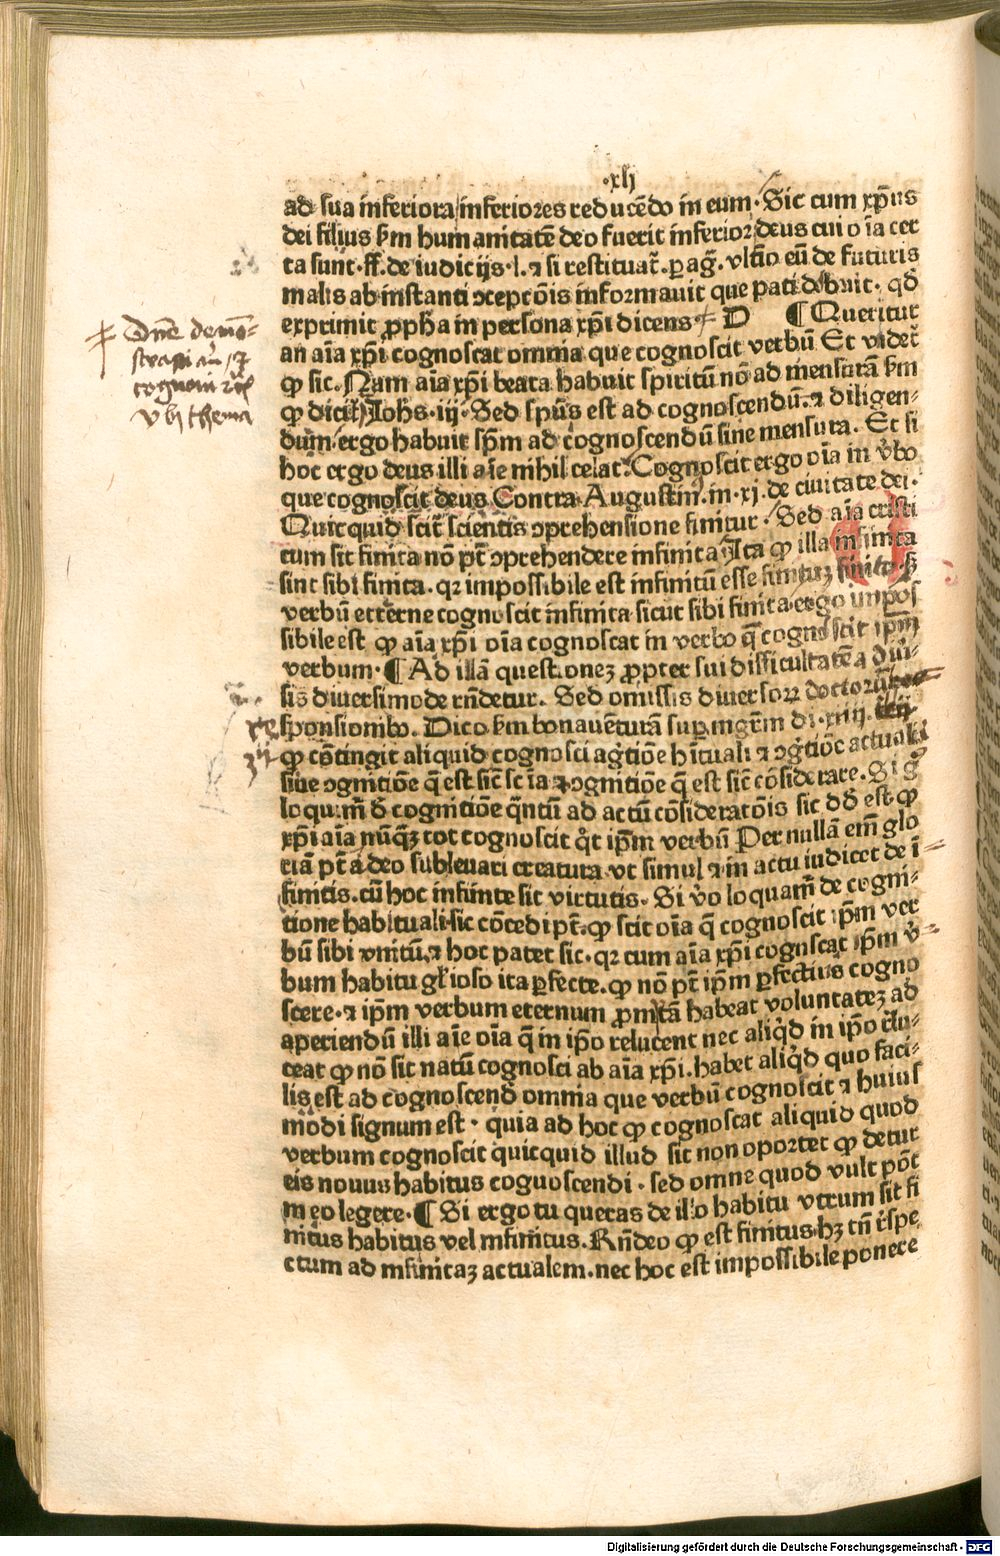 ·xlj
ad sua inferiora inferiores reducēdo in eum· Sic cum xp̄us
dei filius ẜm humanitatē deo fuerit inferior deus cui oīa cer
ta sunt· ff. de iudicijs· l. ⁊ si restituat̄. ꝑag̃. vltīo eū de futuris
malis ab instanti ↄceptōis informauit que pati debuit· qđ
exprimit ꝓpha in persona xp̄i dicens D ¶ Queritur
an aīa xp̄i cognoscat omnia que cognoscit verbū Et videt̄
ꝙ sic. Nam aīa xp̄i beata habuit spiritū nō ad mensurā ẜm
ꝙ dicit̄ Joh̄s· iij· Sed spūs est ad cognoscendū. ⁊ diligen-
dum ergo habuit sp̄m ad cognoscendū sine mensura. Et si
hoc ergo deus illi aīe nihil celat. Cognoscit ergo oīa in v̓bo
que cognoscit deus Contra Augustin̄. in· xj. de ciuitate dei·
Quicquid scit̄ scientis ↄprehensione finitur· Sed aīa cristi
cum sit finita nō pt̄ ↄprehendere infinita Ita ꝙ illa infinita
sint sibi finita· qꝛ impossibile est infinitū esse finituꝫ finite· ẜꝫ
verbū ecterne cognoscit infinita sicut sibi finita ergo impos
sibile est ꝙ aīa xp̄i oīa cognoscat in verbo q̄ cognoscit ip̄m
verbum· ¶ Ad illā questioneꝫ ꝓpter sui difficultatē a diu̓-
sis diuersimode rn̄detur. Sed omissis diuersorꝝ doctorū re
sponsionib᷒. Dico ẜm bonauēturā suꝑ mgr̄m di· xiiij.
ꝙ cōtingit aliquid cognosci ↄg̓tiōe hītuali ⁊ ↄg̓tiōe actuali
siue ↄgnitiōe q̄ est sic̄ scīa ⁊ ↄgnitiōe q̄ est sic̄ cōsiderare. Si g̊
loquim̄ đ cognitiōe q̄ntū ad actū cōsideratōis sic dđ est ꝙ
xp̄i aīa nūqꝫ tot cognoscit q̊t ip̄m verbū Per nullā em̄ glo
riā pt̄ a deo subleuari creatura vt simul ⁊ in actu iudicet de ī-
finitis. cū hoc infinite sit virtutis. Si v̓o loquam̄ de cogni-
tione habituali· sic cōcedi pt̄. ꝙ scit oīa q̄ cognoscit ip̄m ver
bū sibi vnitū. ⁊ hoc patet sic· qꝛ cum aīa xp̄i cognscat ip̄m v̓-
bum habitu gl̓ioso ita ꝑfecte. ꝙ nō pt̄ ip̄m ꝑfectius cogno
scere· ⁊ ip̄m verbum eternum ꝓmptā habeat voluntateꝫ ad
aperiendū illi aīe oīa q̄ in ip̄o relucent nec aliq̊d in ip̄o r̓lu-
ceat ꝙ nō sit natū cognosci ab aīa xp̄i. habet aliq̊d quo faci-
lis est ad cognoscenđ omnia que verbū cognoscit ⁊ huius
modi signum est· quia ad hoc ꝙ cognoscat aliquid quod
verbum cognoscit quicquid illud sit non oportet ꝙ detur
eis nouus habitus cognoscendi· sed omne quod vult pōt
in eo legere· ¶ Si ergo tu queras de illo habitu vtrum sit fi
nitus habitus vel infinitus. Rn̄deo ꝙ est finitus· hꝫ tn̄ r̓spe
ctum ad infinitaꝫ actualem. nec hoc est impossibile ponere
Digitalisierung gefördert durch die Deutsche Forschungsgemeinschaft - DFG